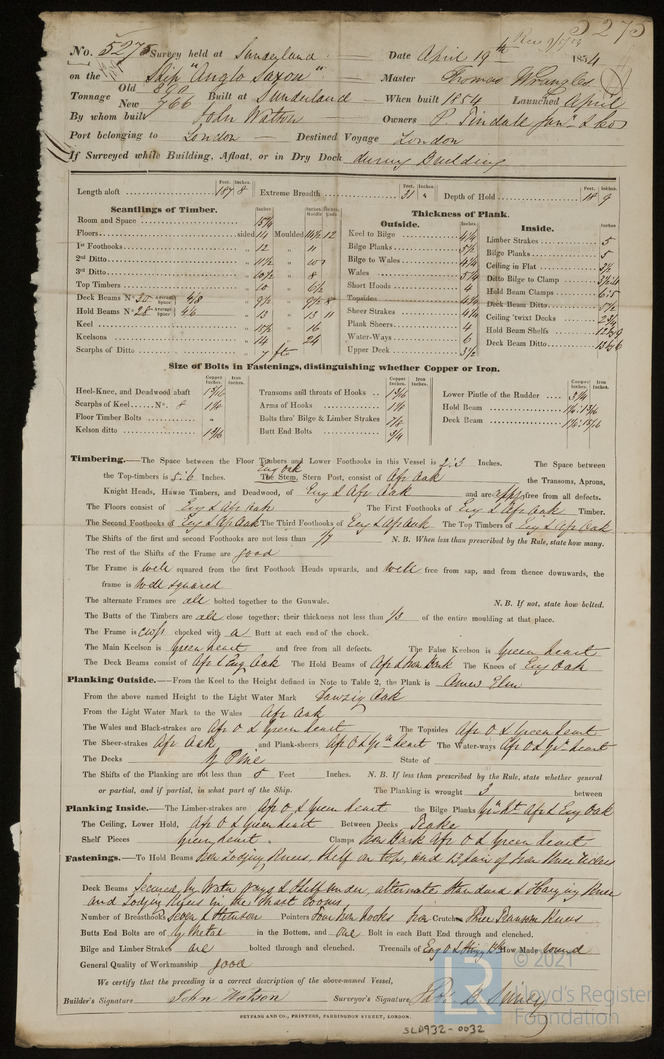 5275
No. 5275 Survey held at Sunderland Date April 19th 1854
on the Ship "Anglo Saxon" Master Thomas Wrangles
Tonnage Old 890 New 766 Built at Sunderland When built 1854 Launched April
By whom built John Watson Owners P. Tindall Junr & Co
Port belonging to London Destined Voyage London
If Surveyed while Building, Afloat, or in Dry Dock during Building
Feet. Inches. Feet. Inches. Feet. Inches.
Length aloft 187 8 Extreme Breadth 31 " Depth of Hold 19 9
Scantlings of Timber.
Room and Space
Floors sided 14 Moulded 12
1st Foothooks 12 " 11
2nd Ditto 11½ " 10
3rd Ditto 10½ " 8
Top Timbers 10 6½
Deck Beams No. 30 Average Space 4/8 9½ 8
Hold Beams No. 28 Average Space 4/6 13 13 11
Keel 15½ " 16
Keelsons 14 " 24
Scarphs of Ditto 7 ft
Thickness of Plank.
Outside.
Keel to Bilge 4½
Bilge Planks 5½
Bilge to Wales 4½
Wales 5¼
Short Hoods 4
Topsides
Sheer Strakes 4¼
Plank Sheers 4
Water-Ways 6
Upper Deck 3½
Inside.
Limber Strakes 5
Bilge Planks 5
Ceiling in Flat 3½
Ditto Bilge to Clamp
Hold Beam Clamps 6.5
Deck Beam Ditto 5½
Ceiling 'twixt Decks 2¾
Hold Beam Shelfs
Deck Beam Ditto
Size of Bolts in Fastenings, distinguishing whether Copper or Iron.
Copper Inches. Iron Inches. Copper Inches. Iron Inches. Copper Inches. Iron Inches.
Heel-Knee, and Deadwood abaft 1 3/16
Scarphs of Keel No. 8 1 1/8
Floor Timber Bolts "
Kelson ditto 1 3/16
Transoms and throats of Hooks 1 3/16
Arms of Hooks 1 1/8
Bolts thro' Bilge & Limber Strakes 1/8
Butt End Bolts ¾
Lower Pintle of the Rudder 3¼
Hold Beam
Deck Beam
Timbering.—The Space between the Floor Timbers and Lower Foothooks in this Vessel is 2.3 Inches. The Space between
the Top-timbers is 5.6 Inches. Eng Oak The Stem, Stern Post, consist of Afr Oak the Transoms, Aprons,
Knight Heads, Hawse Timbers, and Deadwood, of Eng & Afr Oak and are free from all defects.
The Floors consist of Eng & Afr Oak The First Foothooks of Eng & Afr Oak Timber.
The Second Foothooks of Eng & Afr Oak The Third Foothooks of Eng & Afr Oak The Top Timbers of Eng & Afr Oak
The Shifts of the first and second Foothooks are not less than 1/7 N. B. When less than prescribed by the Rule, state how many.
The rest of the Shifts of the Frame are good
The Frame is well squared from the first Foothook Heads upwards, and well free from sap, and from thence downwards, the
frame is well squared
The alternate Frames are all bolted together to the Gunwale. N. B. If not, state how bolted.
The Butts of the Timbers are all close together; their thickness not less than 1/3 of the entire moulding at that place.
The Frame is chocked with a Butt at each end of the chock.
The Main Keelson is Green heart and free from all defects. The False Keelson is Green heart
The Deck Beams consist of Afr & Eng Oak The Hold Beams of Afr & Iron Bark The Knees of Eng Oak
Planking Outside.—From the Keel to the Height defined in Note to Table 2, the Plank is Amer Elm
From the above named Height to the Light Water Mark Danzig Oak
From the Light Water Mark to the Wales Afr Oak
The Wales and Black-strakes are Afr O & Green heart The Topsides Afr O & Green heart
The Sheer-strakes Afr Oak and Plank-sheers Afr O & Grn heart The Water-ways Afr O & Grn heart
The Decks Y Pine State of
The Shifts of the Planking are not less than 5 Feet Inches. N. B. If less than prescribed by the Rule, state whether general
or partial, and if partial, in what part of the Ship. The Planking is wrought 3 between
Planking Inside.—The Limber-strakes are Afr O & Green heart the Bilge Planks Grn ht Afr & Eng Oak
The Ceiling, Lower Hold, Afr O & Green heart Between Decks Teake
Shelf Pieces Green heart Clamps Iron Bark Afr O & Green heart
Fastenings.—To Hold Beams Iron Lodging Knees, Shelf on top, and 13 pair of Iron Knee
Deck Beams Secured by Water ways & Shelf under, alternate Standard & Hanging Knees
and Lodging Knees in the Mast rooms
Number of Breasthooks Seven & Stemson Pointers Four Iron Hooks Iron Crutches Three Transom Knees
Butts End Bolts are of Y Metal in the Bottom, and one Bolt in each Butt End through and clenched.
Bilge and Limber Strakes are bolted through and clenched. Treenails of Eng O & How Made turned
General Quality of Workmanship good
We certify that the preceding is a correct description of the above-named Vessel,
Builder's Signature John Watson Surveyor's Signature,
SEYFANG AND CO., PRINTERS, FARRINGDON STREET, LONDON.
SLD932-0032
LR © 2021
Lloyd's Register
Foundation